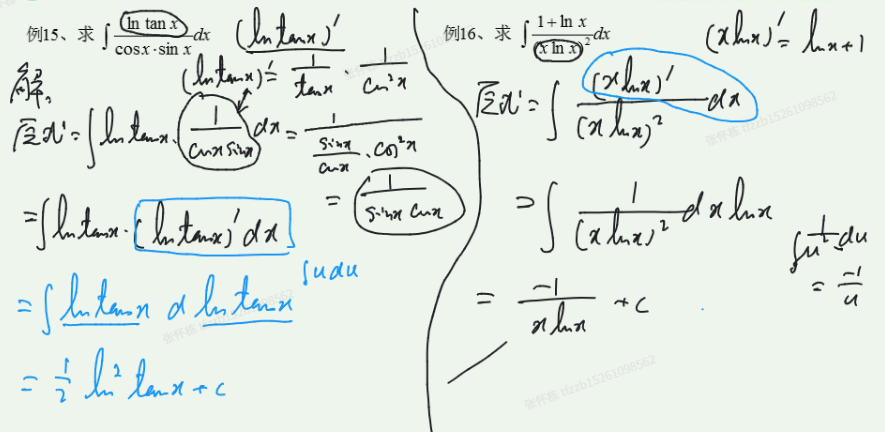 例15、求 ∫ ln tan x / (cos x · sin x) dx
(ln tan x)′
解:
(ln tan x)′ = 1/tan x · 1/cos² x
原式 = ∫ ln tan x · 1/(cos x sin x) dx
= 1/(sin x/cos x · cos² x)
= 1/(sin x cos x)
= ∫ ln tan x · (ln tan x)′ dx
∫ u du
= ∫ ln tan x d ln tan x
= 1/2 ln² tan x + c
例16、求 ∫ (1 + ln x)/(x ln x)² dx
(x ln x)′ = ln x + 1
原式 = ∫ (x ln x)′/(x ln x)² dx
= ∫ 1/(x ln x)² d x ln x
∫ 1/u² du
= -1/u
= -1/(x ln x) + c
张怀栋 tfzzb15261098562
张怀栋 tfzzb15261098562
张怀栋 tfzzb15261098562